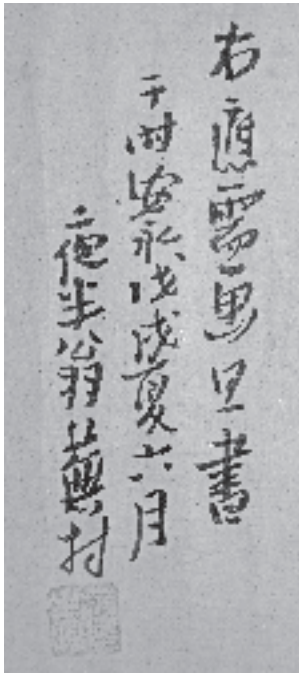 右應需畫且書
于時安永戊戌夏六月
夜半翁蕪村